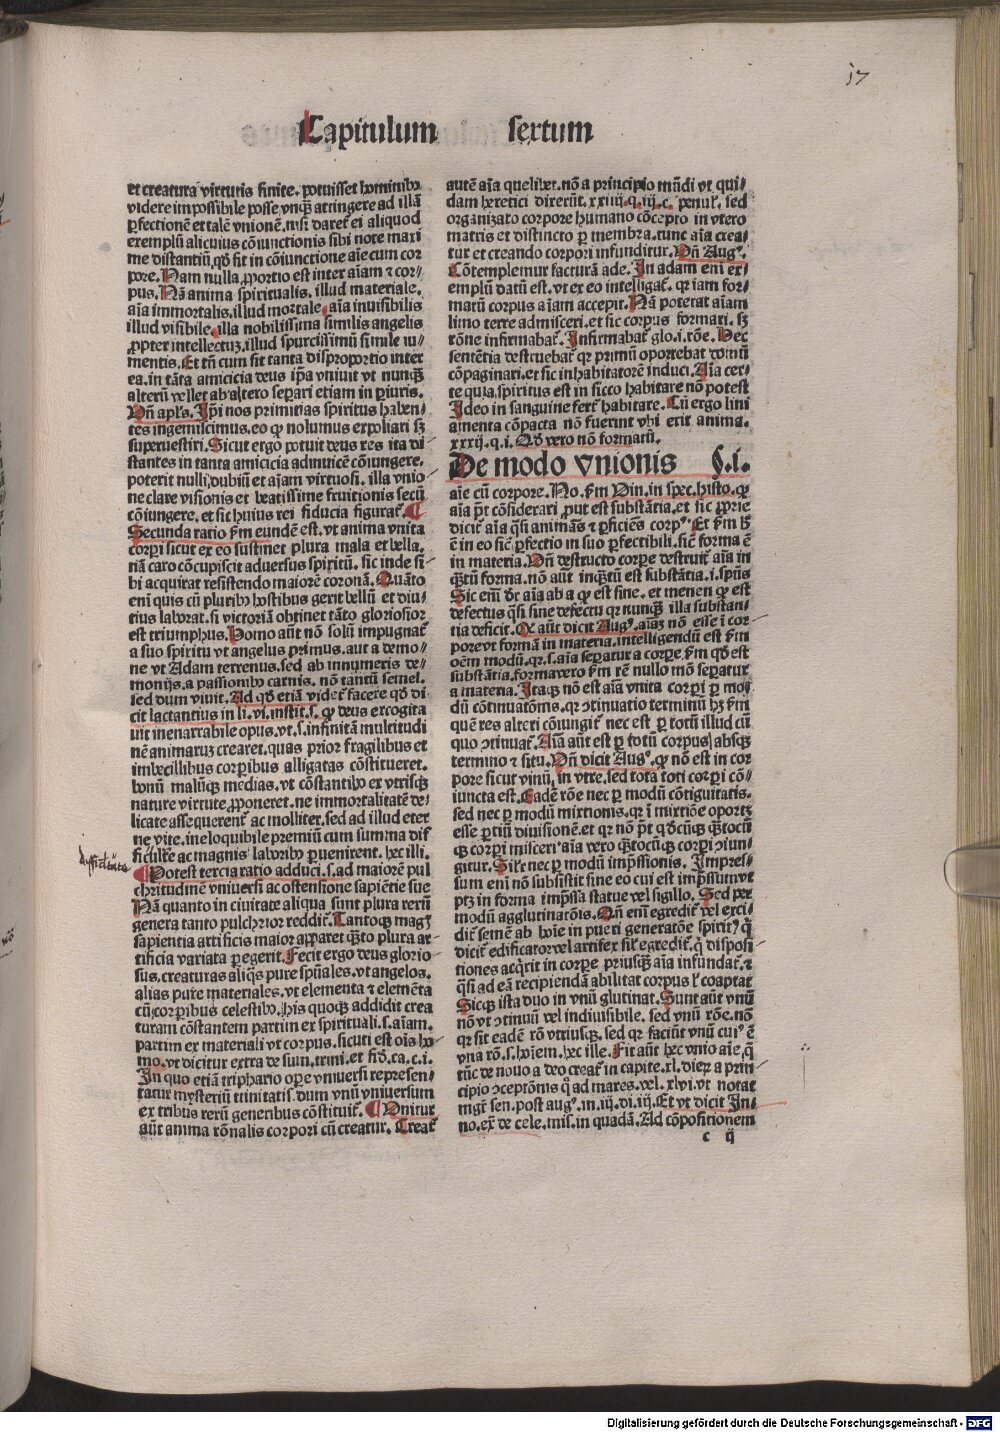 17
Capitulum sextum
et creatura virtutis finite. potuisset hominibꝰ
videre impossibile posse vnqꝫ attingere ad illã
ꝑfectionẽ et talẽ vnionẽ. nisi daret̃ ei aliquod
exemplũ alicuius cõiunctionis sibi note maxi
me distantiũ, qđ fit in cõiunctione aĩe cum cor
pore. Nam nulla ꝓportio est inter aĩam ⁊ cor-
pus. Nã anima spiritualis. illud materiale.
aĩa immortalis. illud mortale. aĩa inuisibilis
illud visibile. illa nobilissima similis angelis
ꝓpter intellectuꝫ. illud spurcissimũ simile iu-
mentis. Et tñ cum sit tanta disproportio inter
ea. in tãta amicicia deus ip̃a vniuit vt nunqꝫ
alterũ vellet ab altero separi etiam in periuris.
Vñ apl̃s. Ip̃i nos primitias spiritus haben-
tes ingemiscimus. eo ꝙ nolumus expoliari sꝫ
superuestiri. Sicut ergo potuit deus res ita di-
stantes in tanta amicicia adinuicẽ cõiungere.
poterit nulli dubiũ et aĩam virtuosi. illa vnio-
ne clare visionis et beatissime fruitionis secũ
cõiungere. et sic huius rei fiducia figurat̃. ¶
Secunda ratio ẜm eundẽ est. vt anima vnita
corpi sicut ex eo sustinet plura mala et bella.
nã caro cõcupiscit aduersus spiritũ. sic inde si-
bi acquirat resistendo maiorẽ coronã. Quãto
enĩ quis cũ pluribꝰ hostibus gerit bellũ et diu-
tius laborat. si victoriã obtinet tãto gloriosior
est triumphus. Homo aũt nõ solũ impugnat̃
a suo spiritu vt angelus primus. aut a demo-
ne vt Adam terrenus. sed ab innumeris de-
monijs. a passionibꝰ carnis. nõ tantũ semel.
sed dum viuit. Ad qđ etiã videt̃ facere qđ di
cit lactantius in li. vi. instit. s. ꝙ deus excogita
uit inenarrabile opus. vt. s. infinitã multitudi
nẽ animaruꝫ crearet. quas prior fragilibus et
imbecillibus corꝑibus alligatas cõstitueret.
bonũ malũqꝫ medias. vt cõstantibꝰ ex vtrisqꝫ
nature virtutẽ ꝓponeret. ne immortalitatẽ de-
licate assequerent̃ ac molliter. sed ad illud eter
ne vite. ineloquibile premiũ cum summa dif
ficul̃te ac magnis laboribꝰ ꝑuenirent. hec illi.
¶ Potest tercia ratio adduci. s. ad maiorẽ pul
chritudinẽ vniuersi ac ostensione sapiẽtie sue
Nã quanto in ciuitate aliqua sunt plura rerũ
genera tanto pulchrior reddit̃. Tantoqꝫ magꝭ
sapientia artificis maior apparet quãto plura ar-
tificia variata ꝑegerit. Fecit ergo deus glorio-
sus. creaturas aliq̃s pure spũales. vt angelos.
alias pure materiales. vt elementa ⁊ elemẽta
cũ corꝑibus celestibꝰ. his quoqꝫ addidit crea
turam cõstantem partim ex spirituali. s. aĩam.
partim ex materiali vt corpus. sicuti est oĩs ho-
mo. vt dicitur extra de sum. trini. et fid̃. ca. c. i.
In quo etiã triphario oꝑe vniuersi represen-
tatur mysteriũ trinitatis. dum vnũ vniuersum
ex tribus rerũ generibus cõstituit̃. ¶ Vnitur
aũt anima rõnalis corpori cũ creatur. Creat̃
difficultate
autẽ aĩa quelibet. nõ a principio mũdi vt qui-
dam heretici dixerũt. xxiiij. q. iij. c. penul̃. sed
organizato corpore humano cõcepto in vtero
matris et distincto ꝑ membra. tunc aĩa crea-
tur et creando corpori infunditur. Vñ Augꝰ.
Cõtemplemur facturã ade. In adam enĩ ex-
emplũ datũ est. vt ex eo intelligat̃. qꝛ iam for-
matũ corpus aĩam accepit. Nã poterat aĩam
limo terre admisceri. et sic corpus formari. sꝫ
rõne infirmabat̃. Infirmabat̃ glo. i. rõe. Hec
sentẽtia destruebat̃ qꝛ primũ oportebat domũ
cõpaginari. et sic inhabitatorẽ induci. Aĩa cer-
te quia spiritus est in sicco habitare nõ potest
Ideo in sanguine fert̃ habitare. Cũ ergo lini
amenta cõpacta nõ fuerint vbi erit anima.
xxxij. q. i. Qđ vero nõ formatũ.
De modo vnionis §. i.
aĩe cũ corpore. No. ẜm Vin. in spec. histo. ꝙ
aĩa põt cõsiderari ꝓut est substãtia. et sic ꝓprie
dicit̃ aĩa q̃si animãs ⁊ ꝑficiẽs corpꝰ. Et ẜm h̃
ẽ in eo sic̃ ꝑfectio in suo ꝑfectibili. sic̃ forma ẽ
in materia. Vñ destructo corꝑe destruit̃ aĩa in
qꝫtũ forma. nõ aũt inqꝫtũ est substãtia. i. spũs
Sic enĩ dr̃ aĩa ab a qđ est sine. et menen qđ est
defectus q̃si sine defectu qꝛ nunqꝫ illa substan-
tia deficit. Qđ aũt dicit Augꝰ. aĩaꝫ nõ esse ĩ cor-
pore vt formã in materia. intelligendũ est ẜm
oẽm modũ. qꝛ. s. aĩa sepatur a corꝑe ẜm qđ est
substãtia. forma vero ẜm rẽ nullo mõ sepatur
a materia. Itaqꝫ nõ est aĩa vnita corpi ꝑ mo-
dũ continuatõnis. qꝛ ꝯtinuatio terminũ hꝫ ẜm
quẽ res alteri cõiungit̃ nec est ꝑ totũ illud cũ
quo ꝯtinuat̃. Aĩa aũt est ꝑ totũ corpus absqꝫ
termino ⁊ situ. Vñ dicit Augꝰ. ꝙ nõ est in cor
pore sicut vinũ in vtre. sed tota toti corpi cõ-
iuncta est. Eadẽ rõe nec ꝑ modũ cõtiguitatis.
sed nec ꝑ modũ mixtionis. qꝛ ĩ mixtiõe oportꝫ
esse ꝑtiũ diuisionẽ. et qꝛ nõ põt qđcũqꝫ qꝫtocũ
qꝫ corpi misceri aĩa vero qꝫtocũqꝫ corpi ꝯiun-
gitur. Sil̃r nec ꝑ modũ imp̃ssionis. Impres-
sum enĩ nõ subsistit sine eo cui est imp̃ssum vt
ptꝫ in forma imp̃ssa statue vel sigillo. Sed per
modũ agglutinatõis. Qñ enĩ egredit̃ vel exci-
dit̃ semẽ ab hoĩe in pueri generatõe spiritꝰ q̃
dicit̃ edificator vel artifex sil̃ egredit̃. q̃ disposi-
tiones acq̃rit in corꝑe priusqꝫ aĩa infundat̃. ⁊
q̃si ad eã recipiendã abilitat corpus l̃ coaptat
Sicqꝫ ista duo in vnũ glutinat. Sunt aũt vnũ
nõ vt ꝯtinuũ vel indiuisibile. sed vnũ rõe. nõ
qꝛ sit eadẽ rõ vtriusqꝫ. sed qꝛ faciũt vnũ cuiꝰ ẽ
vna rõ. s. hoĩem. hec ille. Fit aũt hec vnio aĩe q̃
tũc de nouo a deo creat̃ in capite. xl. dieꝝ a prin-
cipio ꝯceptõnis q̃ ad mares. vel. xlvi. vt notat
mgr̃ sen. post augꝰ. in. iij. di. iij. Et vt dicit In-
no. ex̃. de cele. mis. in quadã. Ad cõpositionem
c ij
Digitalisierung gefördert durch die Deutsche Forschungsgemeinschaft - DFG